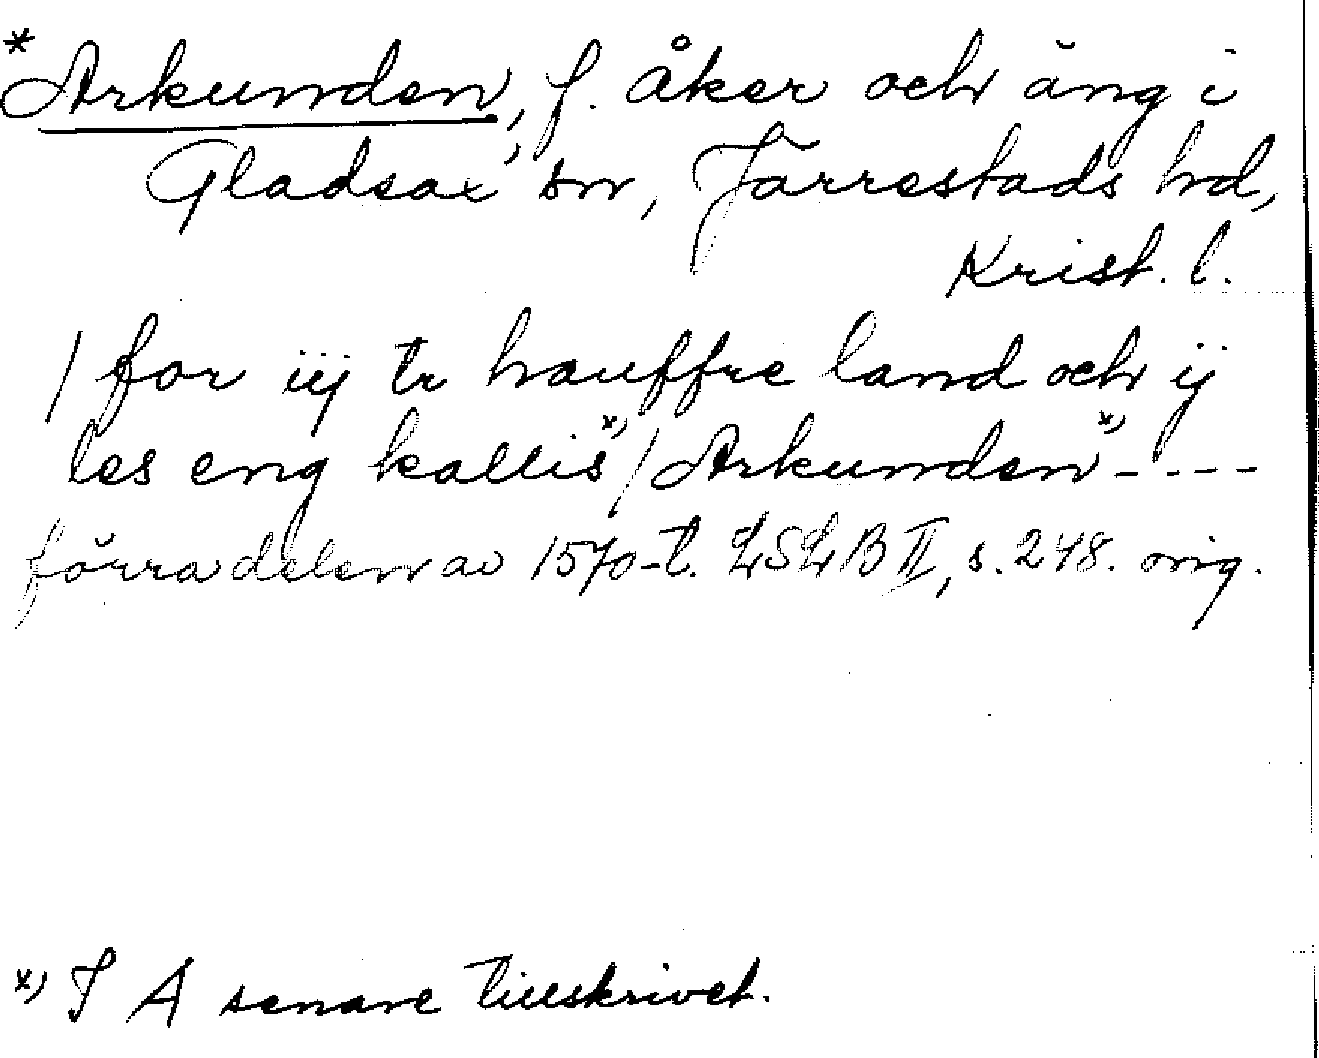 *Arkunden, f. åker och äng i
Gladsax sn, Järrestads hd,
Krist. l.
/ for iij tr hauffre land och ij
les eng kallis x) / Arkunden x) - - - -
förra delen av 1570-t. LSLB II, s. 248. orig.
x) I A senare tillskrivet.